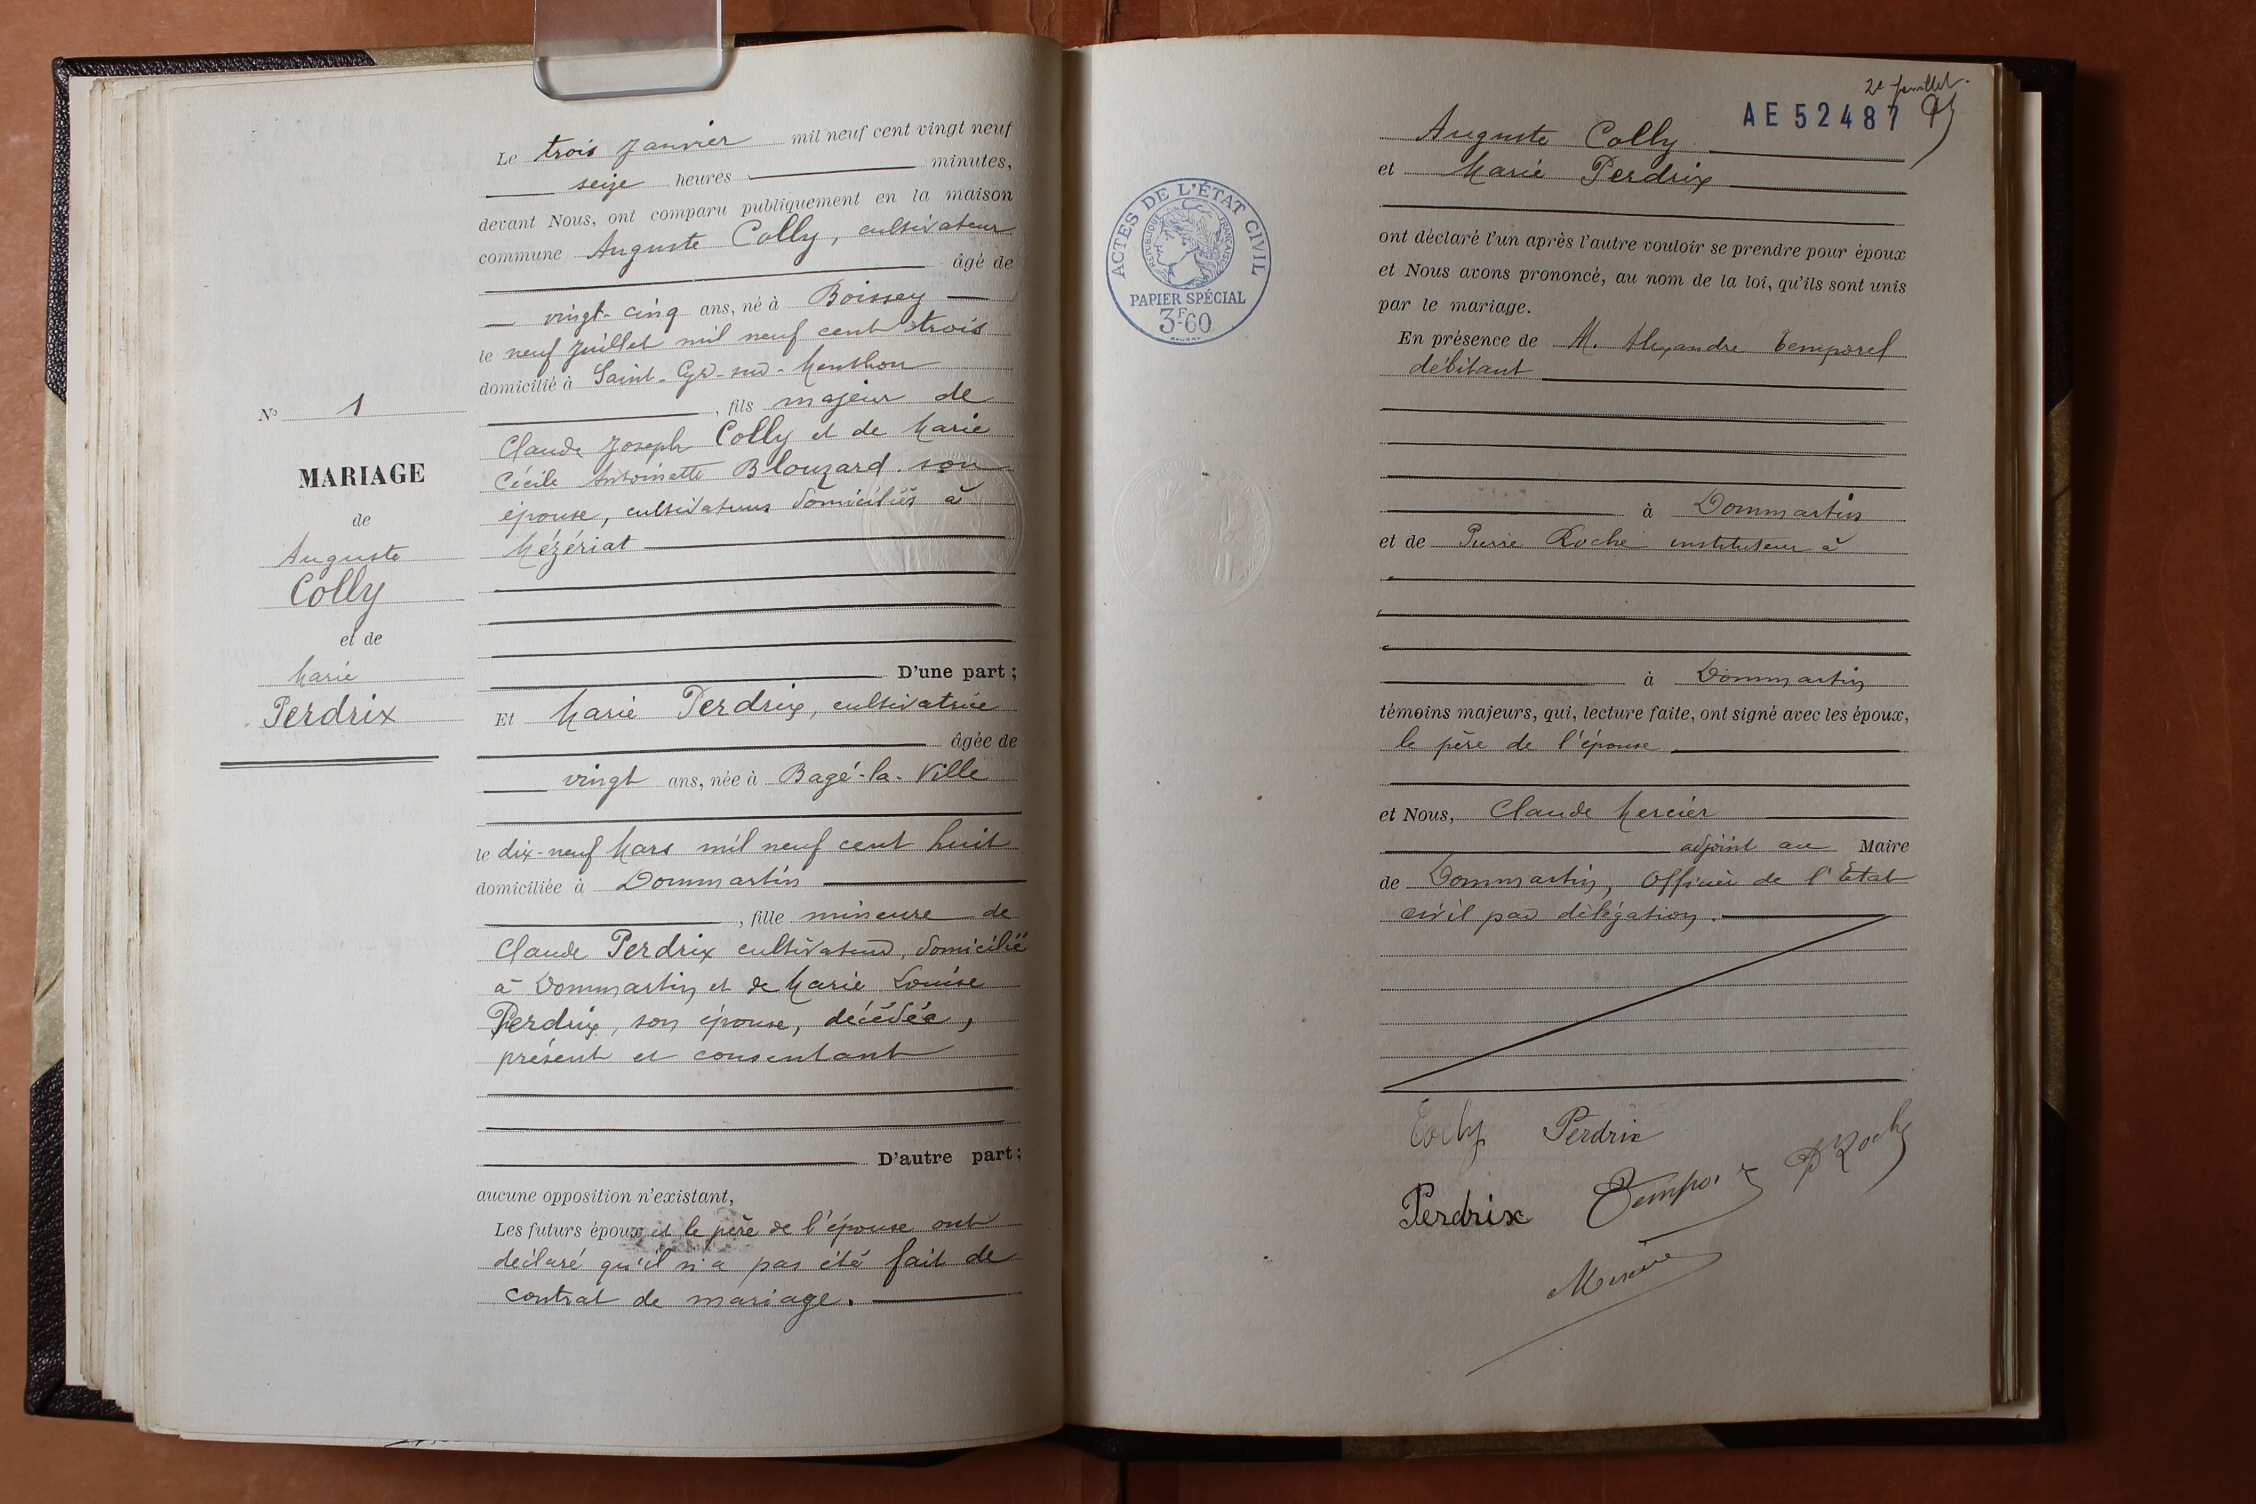 Le trois Janvier mil neuf cent vingt neuf
seize heures minutes,
devant Nous, ont comparu publiquement en la maison
commune Auguste Colly, cultivateur
âgé de
vingt-cinq ans, né à Boissey
le neuf Juillet mil neuf cent trois
domicilié à Saint-Cyr-sur-Menthon
, fils majeur de
Claude Joseph Colly et de Marie
Cécile Antoinette Blouzard son
épouse, cultivateurs domiciliés à
Mézériat
D'une part ;
N° 1
MARIAGE
de
Auguste
Colly
et de
Marie
Perdrix
Et Marie Perdrix, cultivatrice
âgée de
vingt ans, née à Bagé-la-Ville
le dix-neuf Mars mil neuf cent huit
domiciliée à Dommartin
, fille mineure de
Claude Perdrix cultivateur, domicilié
à Dommartin et de Marie Louise
Perdrix, son épouse, décédée,
présent et consentant
D'autre part ;
aucune opposition n'existant,
Les futurs époux et le père de l'épouse ont
déclaré qu'il n'a pas été fait de
contrat de mariage.
2e feuillet.
AE 52487
Auguste Colly
et Marie Perdrix
ACTES DE L'ÉTAT CIVIL
RÉPUBLIQUE FRANÇAISE
PAPIER SPÉCIAL
3F60
ont déclaré l'un après l'autre vouloir se prendre pour époux
et Nous avons prononcé, au nom de la loi, qu'ils sont unis
par le mariage.
En présence de M. Alexandre Temporel
débitant
à Dommartin
et de Pierre Roche instituteur à
à Dommartin
témoins majeurs, qui, lecture faite, ont signé avec les époux,
le père de l'épouse
et Nous, Claude Mercier
adjoint au Maire
de Dommartin, Officier de l'Etat
civil par délégation.
Colly Perdrix
P Roche
Perdrix
Mercier